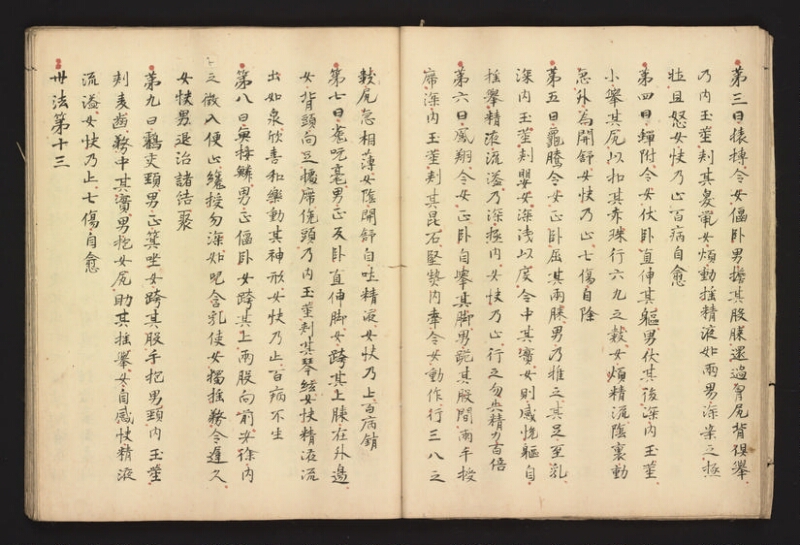 第三曰猿搏令女偃卧男擔其股膝還過胷尻背俱舉
乃内玉莖刾其臭鼠女煩動搖精液如雨男深案之極
壮且怒女快乃止百病自愈
第四曰蟬附令女伏卧直伸其軀男伏其後深内玉莖
小舉其尻以扣其赤珠行六九之數女煩精流陰裏動
急外為開舒女快乃止七傷自除
第五曰龜騰令女正卧屈其兩膝男乃推之其足至乳
深内玉莖刾嬰女深淺以度令中其實女則感悅軀自
搖舉精液流溢乃深極内女快乃止行之勿失精力百倍
第六曰鳳翔令女正卧自舉其脚男跪其股間兩手授
席深内玉莖刾其昆石堅熱内牽令女動作行三八之
數尻急相薄女陰開舒自吐精液女快乃止百病銷
第七曰兎吮毫男正反卧直伸脚女跨其上膝在外邊
女背頭向足據席俛頭乃内玉莖刾其琴絃女快精液流
出如泉欣喜和樂動其神形女快乃止百病不生
第八曰魚接鱗男正偃卧女跨其上兩股向前安徐内
之微入便止纔授勿深如兒含乳使女獨搖務令遲久
女快男退治諸結聚
第九曰鶴交頸男正箕坐女跨其股手抱男頸内玉莖
刾麦齒務中其實男抱女尻助其搖舉女自感快精液
流溢女快乃止七傷自愈
卅法第十三